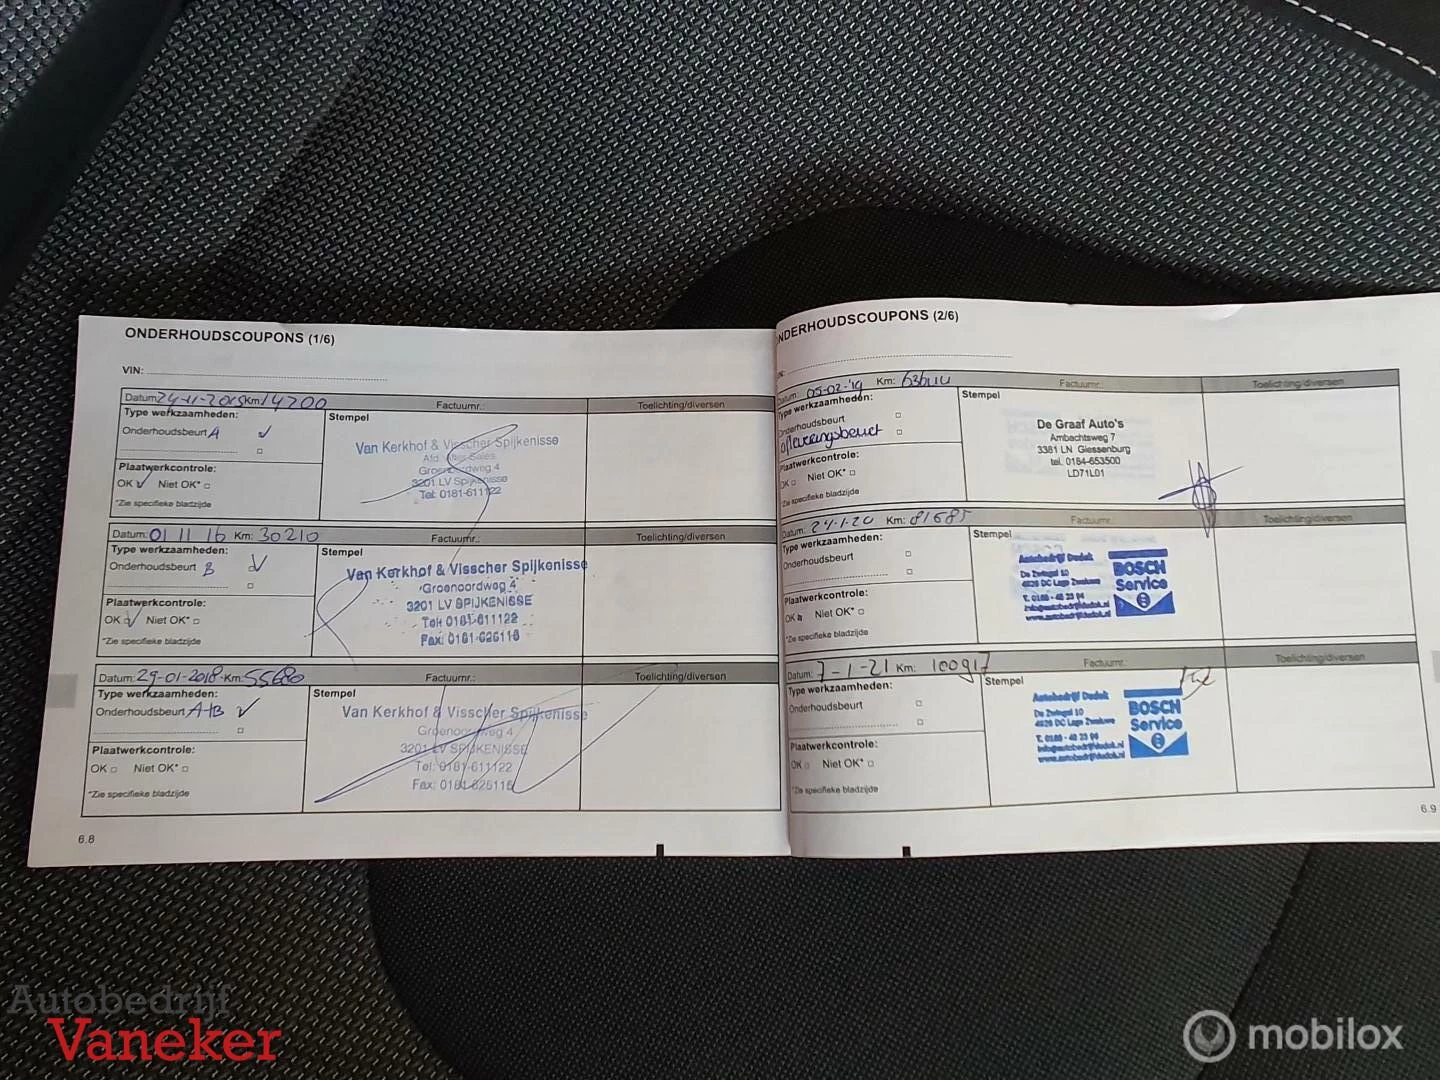 ONDERHOUDSCOUPONS (1/6)
VIN:
Datum 24-11-2015 Km 14200 Factuurnr.: Toelichting/diversen
Type werkzaamheden:
Onderhoudsbeurt A
Stempel
Van Kerkhof & Visscher Spijkenisse
Afd. After Sales
Groenoordweg 4
3201 LV Spijkenisse
Tel: 0181-611122
Plaatwerkcontrole:
OK Niet OK*
*Zie specifieke bladzijde
Datum: 01 11 16 Km: 30210 Factuurnr.: Toelichting/diversen
Type werkzaamheden:
Onderhoudsbeurt B
Stempel
Van Kerkhof & Visscher Spijkenisse
Groenoordweg 4
3201 LV SPIJKENISSE
Tel: 0181-611122
Fax: 0181-626116
Plaatwerkcontrole:
OK Niet OK*
*Zie specifieke bladzijde
Datum: 29-01-2018 Km: 55680 Factuurnr.: Toelichting/diversen
Type werkzaamheden:
Onderhoudsbeurt A+B
Stempel
Van Kerkhof & Visscher Spijkenisse
Groenoordweg 4
3201 LV SPIJKENISSE
Tel: 0181-611122
Fax: 0181-626116
Plaatwerkcontrole:
OK Niet OK*
*Zie specifieke bladzijde
6.8
ONDERHOUDSCOUPONS (2/6)
Datum: 05-02-'19 Km: Factuurnr.: Toelichting/diversen
Type werkzaamheden:
Onderhoudsbeurt
afleveringsbeurt
Stempel
De Graaf Auto's
Ambachtsweg 7
3381 LN Giessenburg
tel. 0184-653500
LD71L01
Plaatwerkcontrole:
OK Niet OK*
*Zie specifieke bladzijde
Datum: 24-1-20 Km: 81685 Factuurnr.: Toelichting/diversen
Type werkzaamheden:
Onderhoudsbeurt
Stempel
Autobedrijf Dudok
De Zwingel 10
4926 DC Lage Zwaluwe
www.autobedrijfdudok.nl
BOSCH
Service
Plaatwerkcontrole:
OK Niet OK*
*Zie specifieke bladzijde
Datum: 7-1-21 Km: 100917 Factuurnr.: Toelichting/diversen
Type werkzaamheden:
Onderhoudsbeurt
Stempel
Autobedrijf Dudok
De Zwingel 10
4926 DC Lage Zwaluwe
info@autobedrijfdudok.nl
www.autobedrijfdudok.nl
BOSCH
Service
Plaatwerkcontrole:
OK Niet OK*
*Zie specifieke bladzijde
6.9
Autobedrijf
Vaneker
mobilox